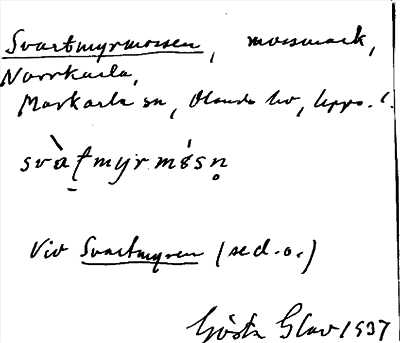 Svartmyrmossen, mossmark,
Norrkarla,
Markarla sn, Olands hd, Upps. l.
svàṭmyrmósṇ
Vid Svartmyren (se d. o.)
Gösta Glav 1937